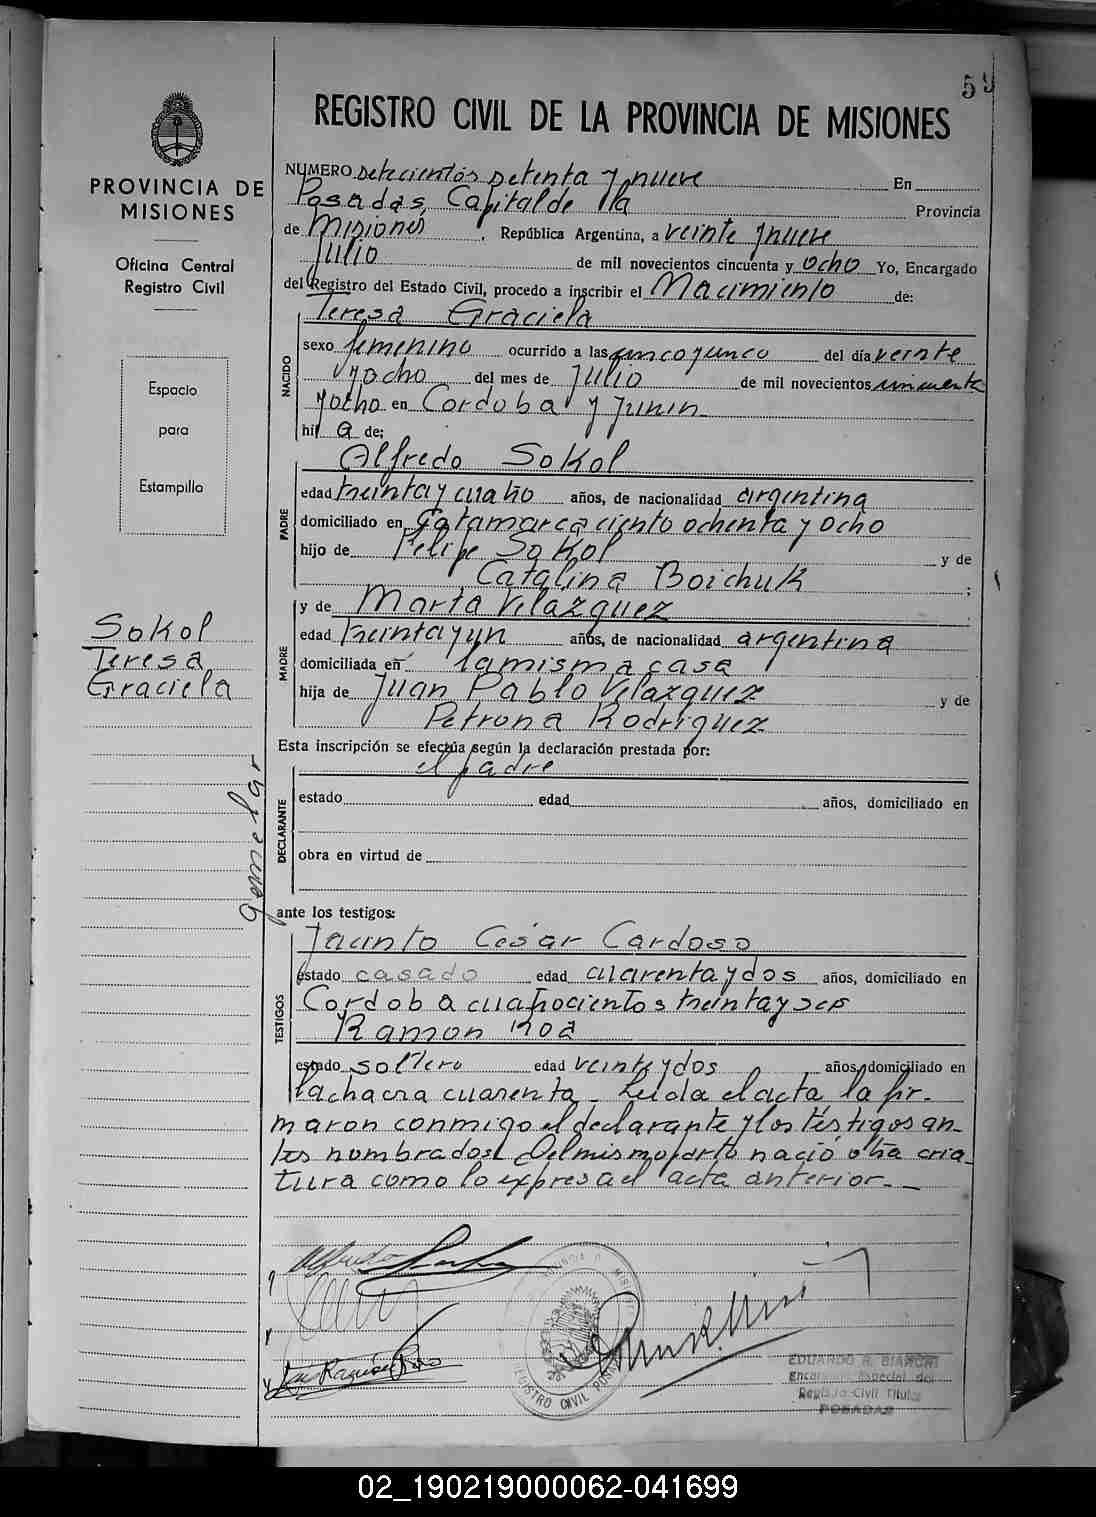 59
REGISTRO CIVIL DE LA PROVINCIA DE MISIONES
PROVINCIA DE
MISIONES
Oficina Central
Registro Civil
Espacio
para
Estampilla
Sokol
Teresa
Graciela
gemelar
NUMERO Setecientos setenta y nueve En
Posadas, Capital de la Provincia
de Misiones, República Argentina, a veinte y nueve
Julio de mil novecientos cincuenta y ocho Yo, Encargado
del Registro del Estado Civil, procedo a inscribir el Nacimiento de:
NACIDO
Teresa Graciela
sexo femenino ocurrido a las cinco y cinco del día veinte
y ocho del mes de Julio de mil novecientos cincuenta
y ocho en Cordoba y Junin
hij a de:
PADRE
Alfredo Sokol
edad treinta y cuatro años, de nacionalidad argentina
domiciliado en Catamarca ciento ochenta y ocho
hijo de Felipe Sokol y de
Catalina Boichuk ;
y de Marta Velazquez
MADRE
edad treinta y un años, de nacionalidad argentina
domiciliada en la misma casa
hija de Juan Pablo Velazquez y de
Petrona Rodriguez
Esta inscripción se efectúa según la declaración prestada por:
el padre
DECLARANTE
estado edad años, domiciliado en
obra en virtud de
ante los testigos:
TESTIGOS
Jacinto César Cardoso
estado casado edad cuarenta y dos años, domiciliado en
Cordoba cuatrocientos treinta y seis
Ramon Roa
estado soltero edad veinte y dos años, domiciliado en
la chacra cuarenta. Leida el acta la fir-
maron conmigo el declarante y los testigos an-
tes nombrados. Del mismo parto nació otra cria-
tura como lo expresa el acta anterior.-
Alfredo
PROVINCIA DE MISIONES
REGISTRO CIVIL POSADAS
EDUARDO R. BIANCHI
Encargado Especial del
Registro Civil Titular
POSADAS
02_190219000062-041699